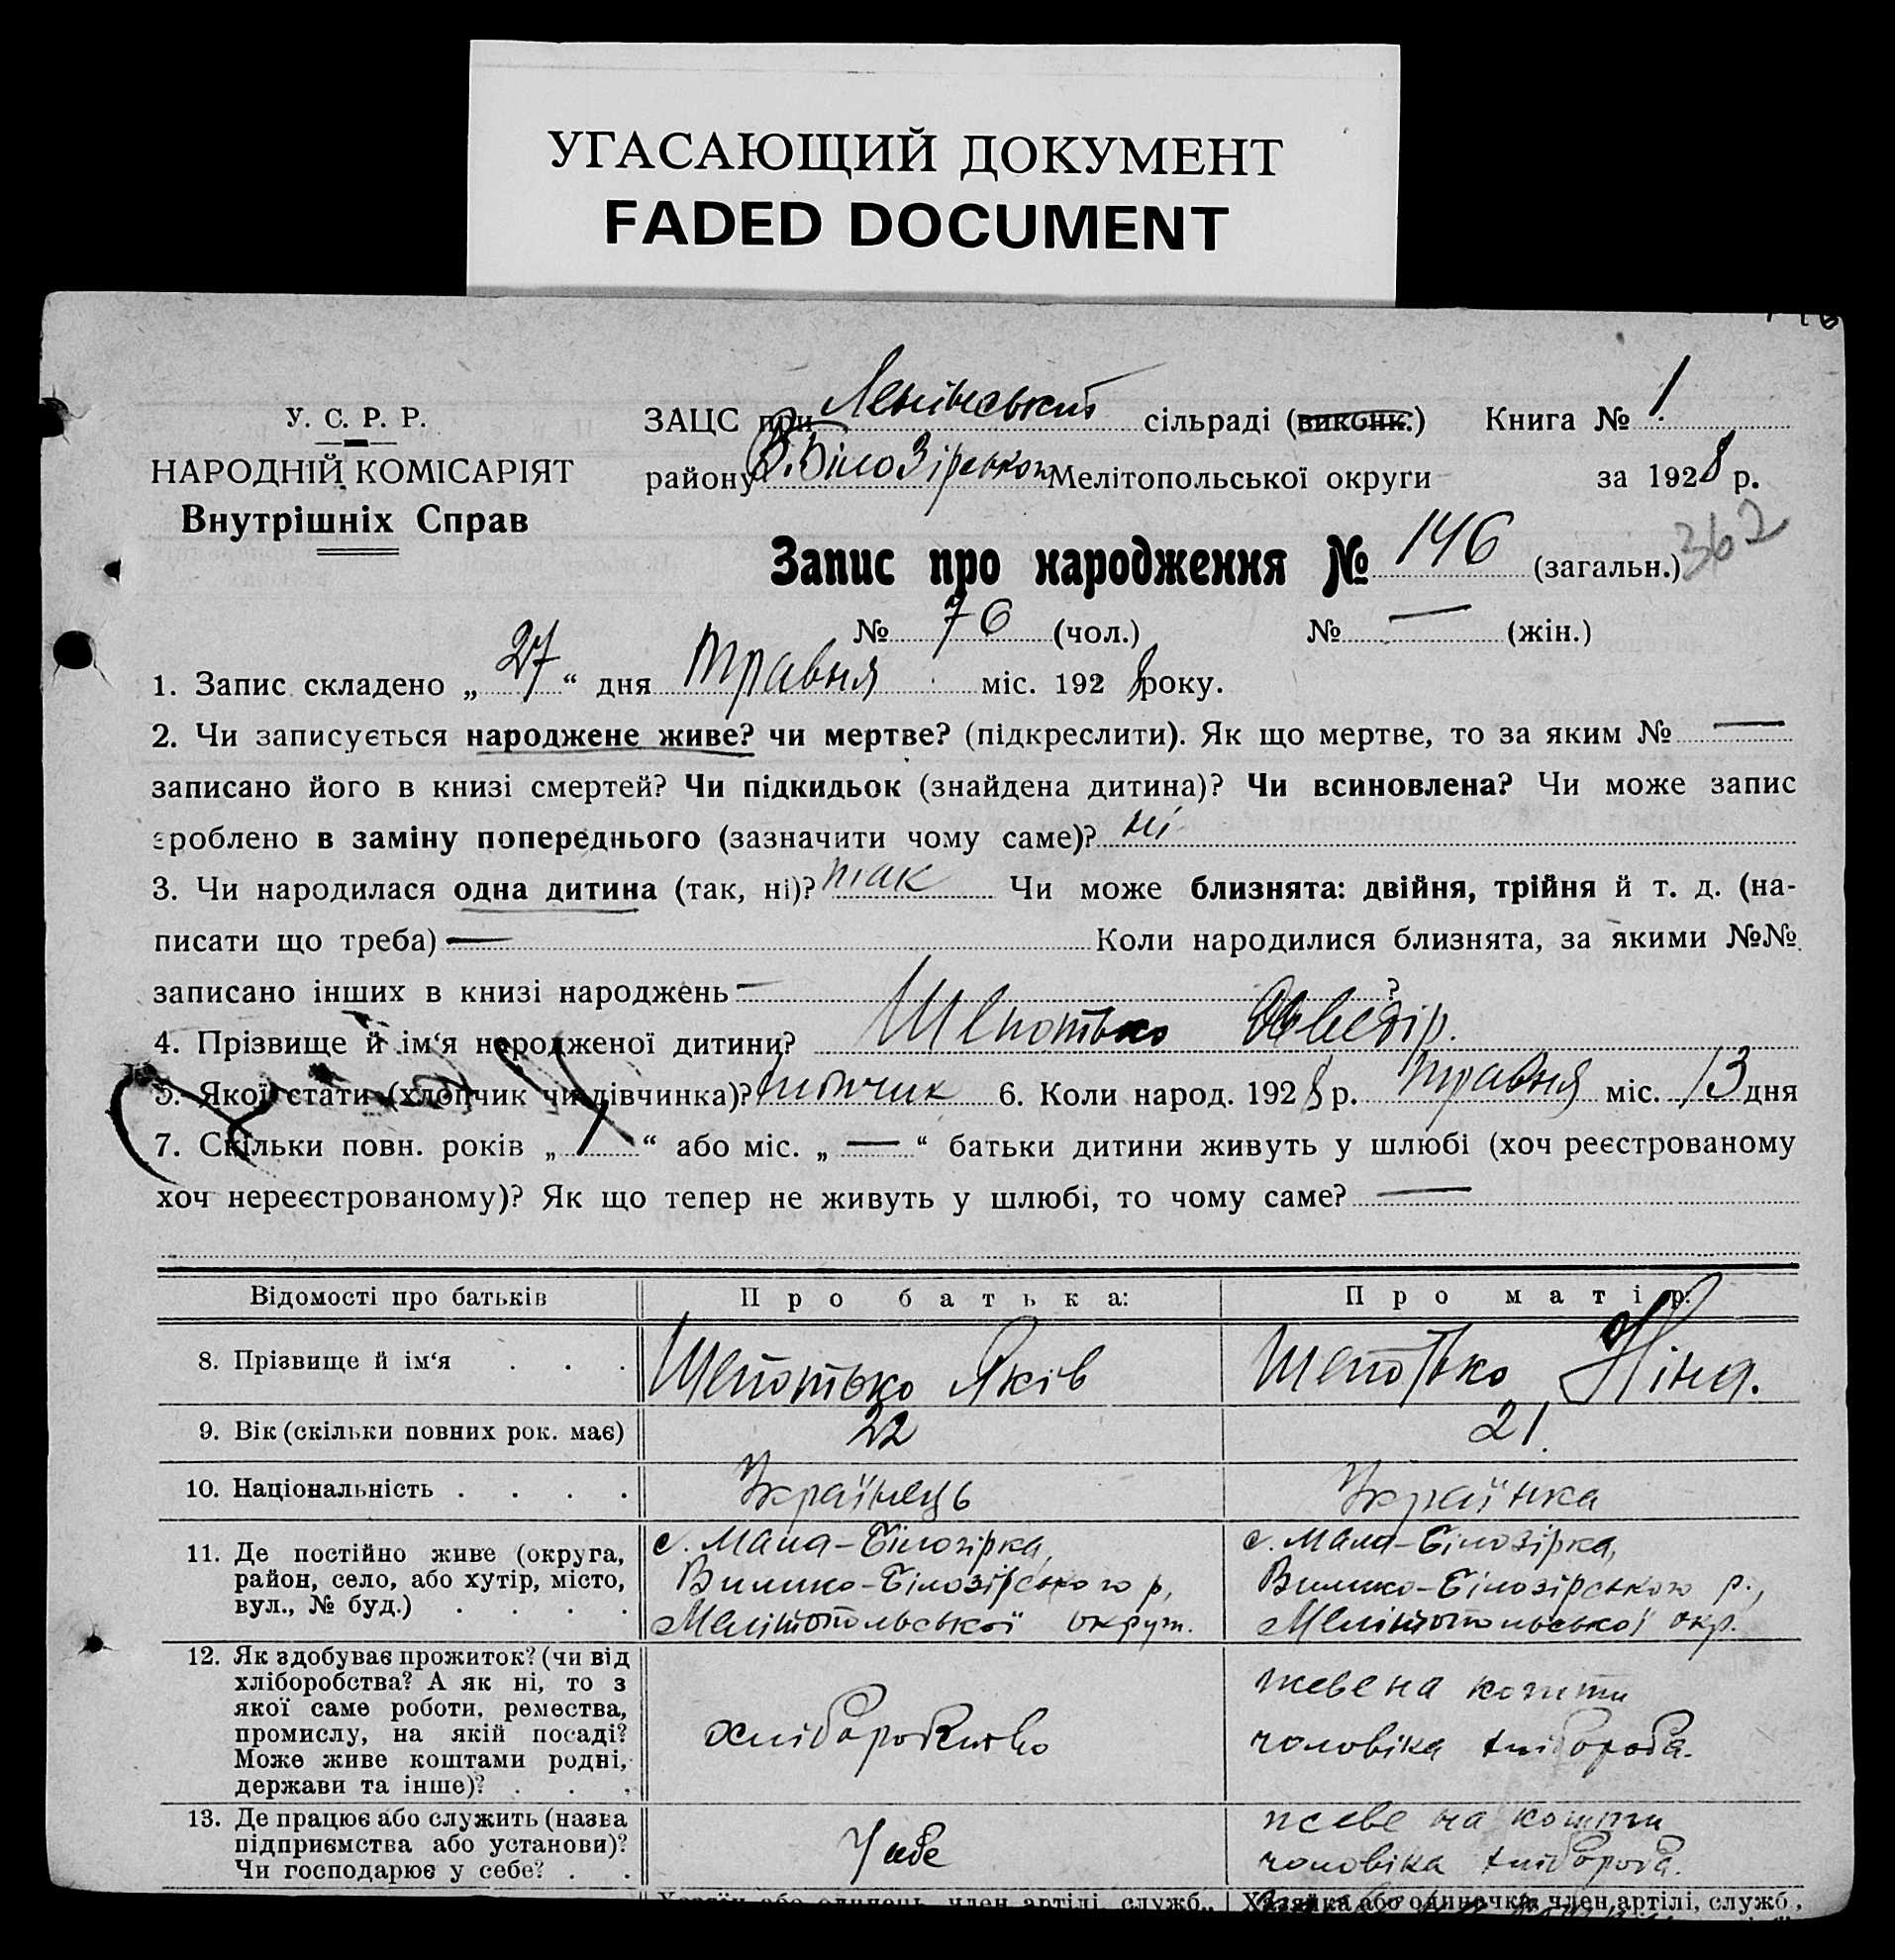 УГАСАЮЩИЙ ДОКУМЕНТ
FADED DOCUMENT
У. С. Р. Р.
НАРОДНІЙ КОМІСАРІЯТ
Внутрішніх Справ
ЗАЦС при Ленінський сільраді (виконк.) Книга № 1
району В. Білозірського Мелітопольської округи за 1928 р.
Запис про народження № 146 (загальн.) 362
№ 76 (чол.) № — (жін.)
1. Запис складено „27“ дня Травня міс. 1928 року.
2. Чи записується народжене живе? чи мертве? (підкреслити). Як що мертве, то за яким № —
записано його в книзі смертей? Чи підкидьок (знайдена дитина)? Чи всиновлена? Чи може запис
зроблено в заміну попереднього (зазначити чому саме)? ні
3. Чи народилася одна дитина (так, ні)? так Чи може близнята: двійня, трійня й т. д. (на-
писати що треба) — Коли народилися близнята, за якими №№
записано інших в книзі народжень — ?
4. Прізвище й ім‘я народженої дитини? Шепотько
5. Якої стати (хлопчик чи дівчинка)? хлопчик 6. Коли народ. 1928 р. Травня міс. 13 дня
7. Скільки повн. років „1“ або міс. „—“ батьки дитини живуть у шлюбі (хоч реєстрованому
хоч нереєстрованому)? Як що тепер не живуть у шлюбі, то чому саме? —
Відомості про батьків Про батька: Про матір:
8. Прізвище й ім‘я . . . Шепотько Яків Шепотько Ніна.
9. Вік (скільки повних рок. має) 22 21.
10. Національність . . . . Українець Українка
11. Де постійно живе (округа, район, село, або хутір, місто, вул., № буд.) . . . .
с. Мала-Білозірка,
Велико-Білозірського р,
Мелітопольської округи.
с. Мала-Білозірка,
Велико-Білозірського р.,
Мелітопольської окр.
12. Як здобуває прожиток? (чи від
хліборобства? А як ні, то з
якої саме роботи, ремества,
промислу, на якій посаді?
Може живе коштами родні,
держави та інше)? . . .
хліборобство
живе на кошти
чоловіка хлібороба.
13. Де працює або служить (назва
підприємства або установи)?
Чи господарює у себе? . .
У себе
живе на кошти
чоловіка хлібороба.
Хазяїн або одинець, член артілі, служб., Хазяйка або одиночка, член артілі, служб.,